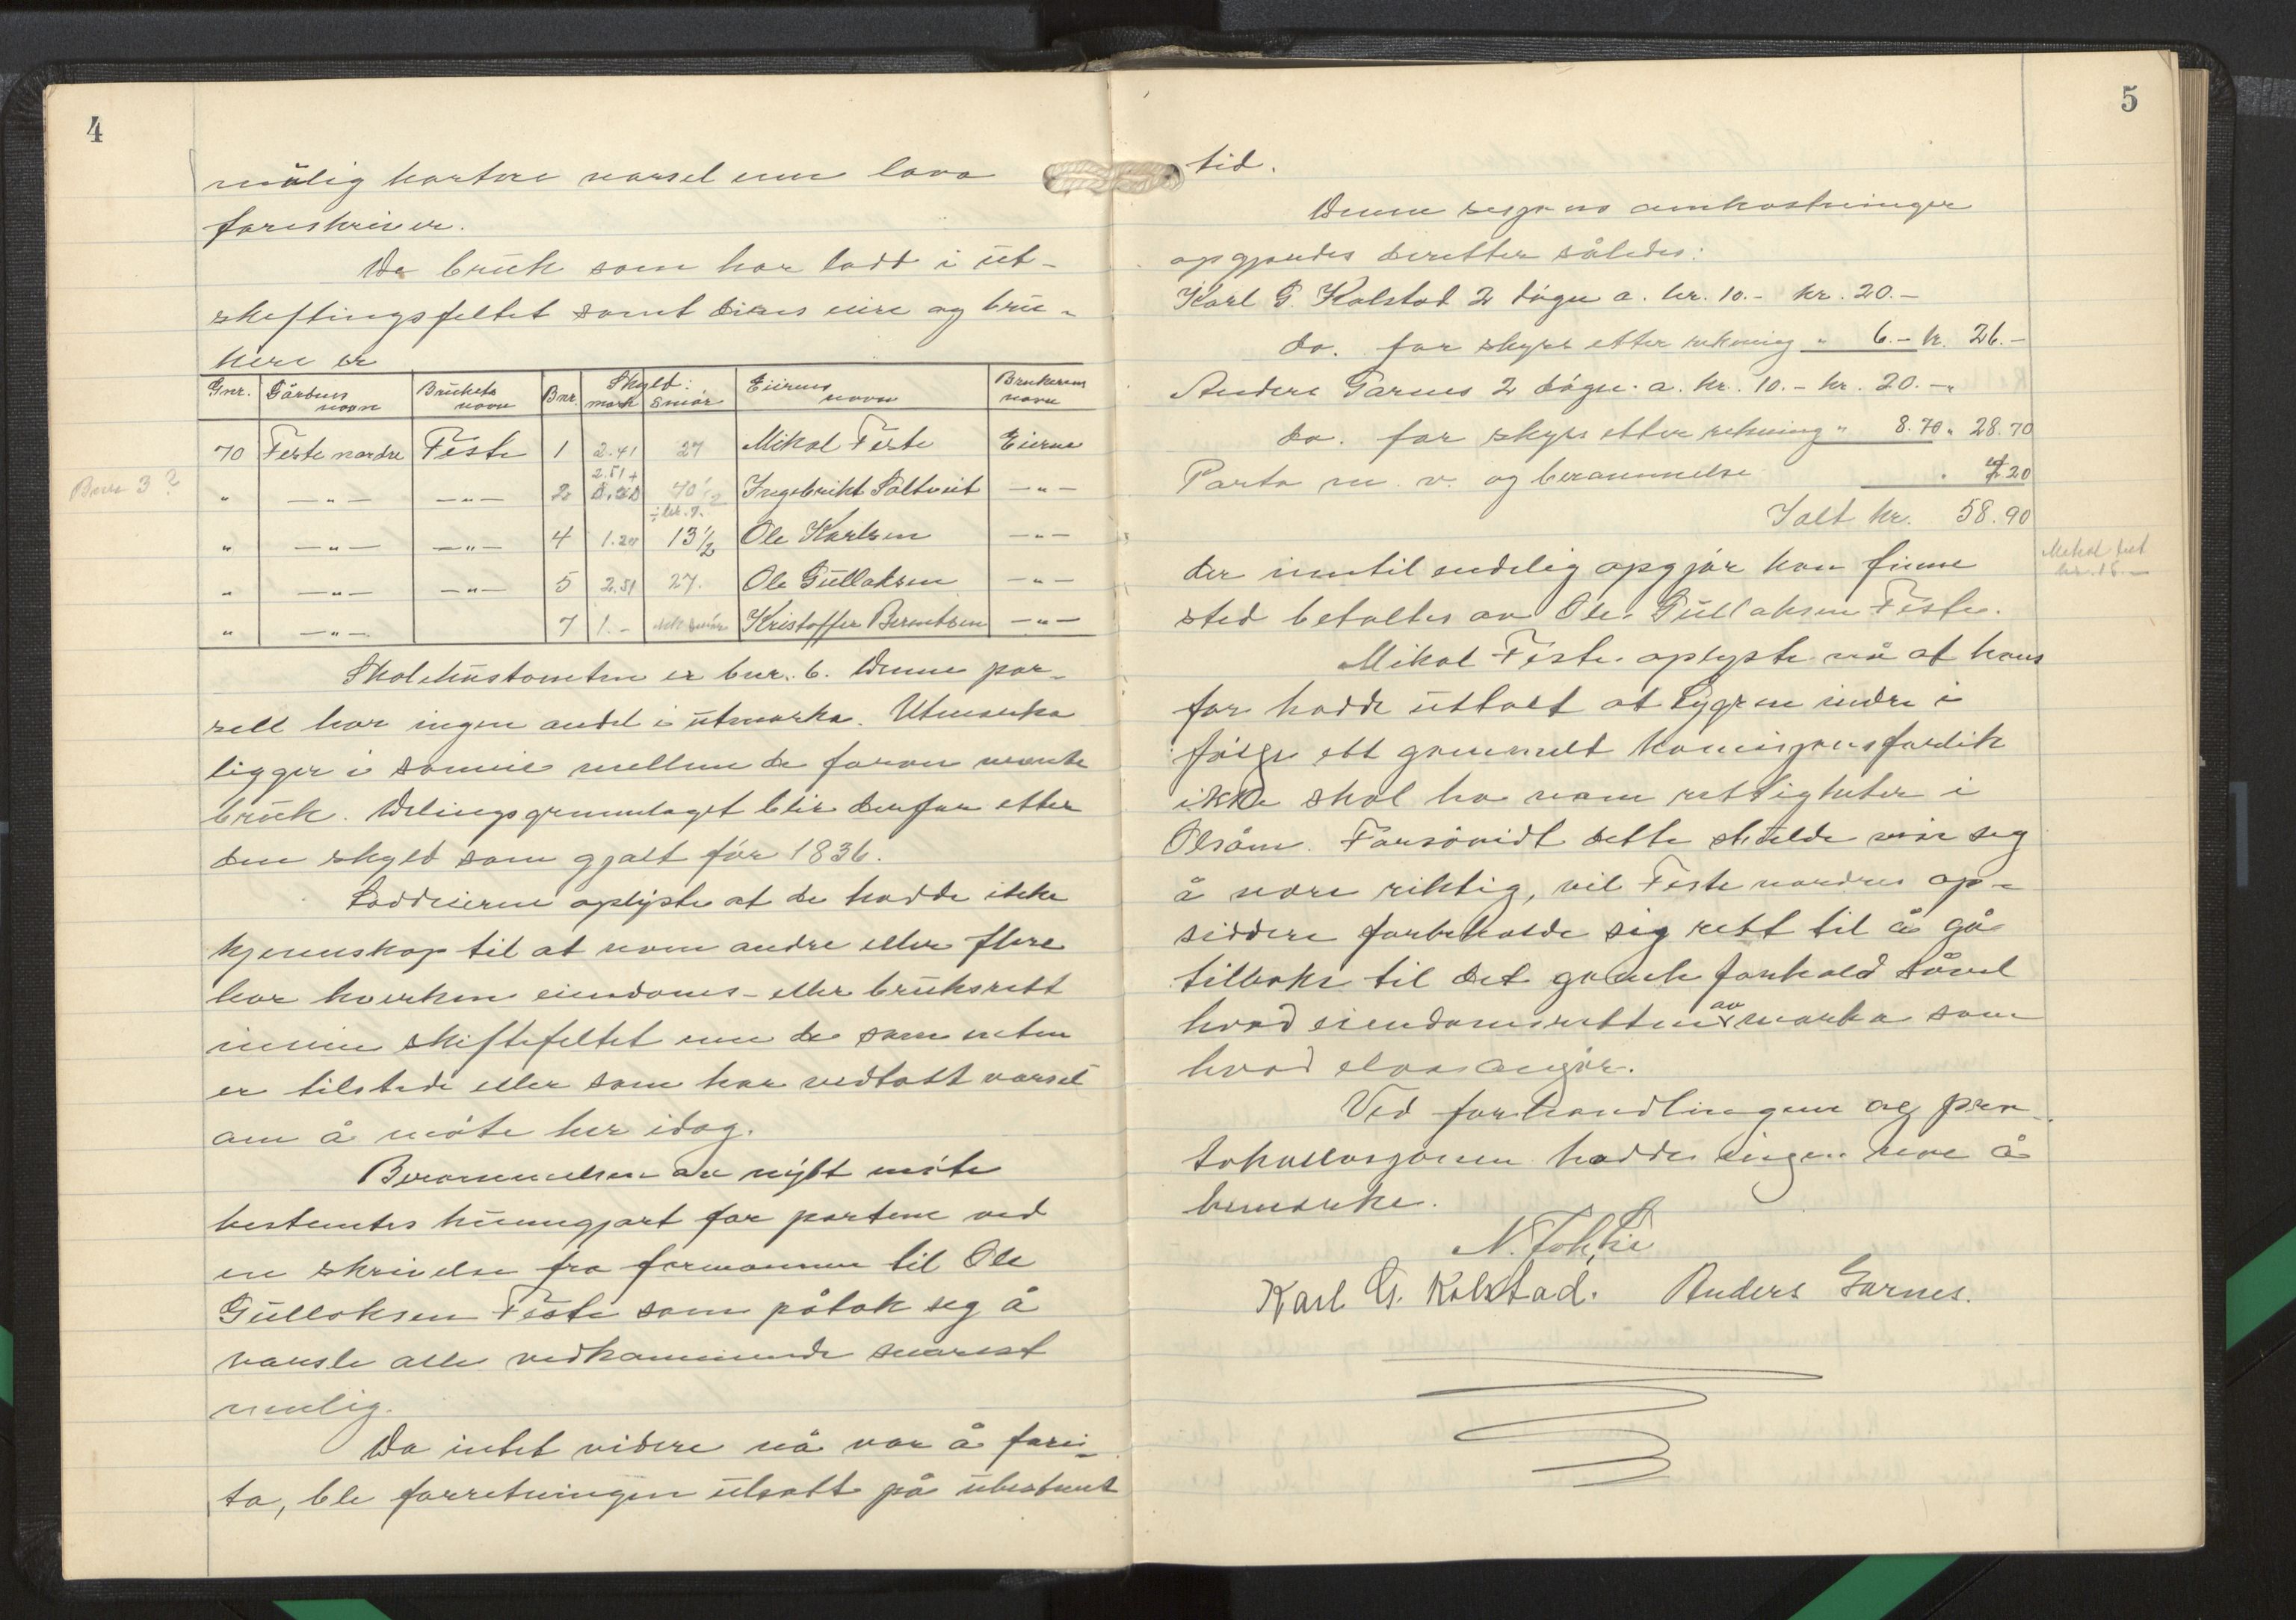 4
mulig kortere varsel enn lova
foreskriver.
De bruk som har lodd i ut-
skiftingsfeltet samt deres eiere og bru-
kere er
Gnr. Gårdens navn Brukets navn Bnr. Skyld: mark Smør Eierens navn Brukerens navn
70 Feste nordre Feste 1 2.41 27 Mikal Feste Eierne
Bnr 3?
" —"— —"— 2 2.51+ 40 1/2 Ingebrikt Saltveit —"—
" —"— —"— 4 1.24 13 1/2 Ole Karlsen —"—
" —"— —"— 5 2.51 27. Ole Gullaksen —"—
" —"— 7 1.- Kristoffer Berntsen —"—
Skolehustomten er bnr. 6. Denne par-
sell har ingen andel i utmarka. Utmarka
ligger i sameie mellem de foran nevnte
bruk. Delingsgrunnlaget blir derfor etter
den skyld som gjalt før 1836.
Loddeierne oplyste at de hadde ikke
kjennskap til at noen andre eller flere
har hverken eiendoms- eller bruksrett
innen skiftefeltet enn de som enten
er tilstede eller som har vedtatt varsel
om å møte her idag.
Berammelsen av nytt møte
bestemtes kunngjort for partene ved
en skrivelse fra formannen til Ole
Gullaksen Feste som påtok seg å
varsle alle vedkommende snarest
mulig.
Da intet videre nå var å fore-
ta, ble forretningen utsatt på ubestemt
5
tid.
Denne sesjons omkostninger
opgjordes deretter således:
Karl G. Kolstad 2 døgn a. kr. 10.- kr. 20.-
do. for skyss etter rekning " 6.- kr. 26.-
Anders Garnes 2 døgn. a. kr. 10.- kr. 20.-
do. for skyss etter rekning " 8.70 " 28.70
Porto m. v. og berammelse " 4.20
Ialt kr. 58.90
der inntil endelig opgjør kan finne
Mikal
sted betaltes av Ole Gullaksen Feste.
Mikal Feste oplyste nå at hans
far hadde uttalt at Lygren indre i
følge ett gammelt komisjonsforlik
ikke skal ha noen rettigheter i
Olsåm. Forsåvidt dette skulde vise seg
å være riktig, vil Feste nordres op-
siddere forbeholde sig rett til å gå
tilbake til det gamle forhold såvel
hvad eiendomsretten av marka som
hvad elva angår.
Ved forhandlingene og pro-
tokollasjonen hadde ingen noe å
bemerke.
Karl G. Kolstad. Anders Garnes.